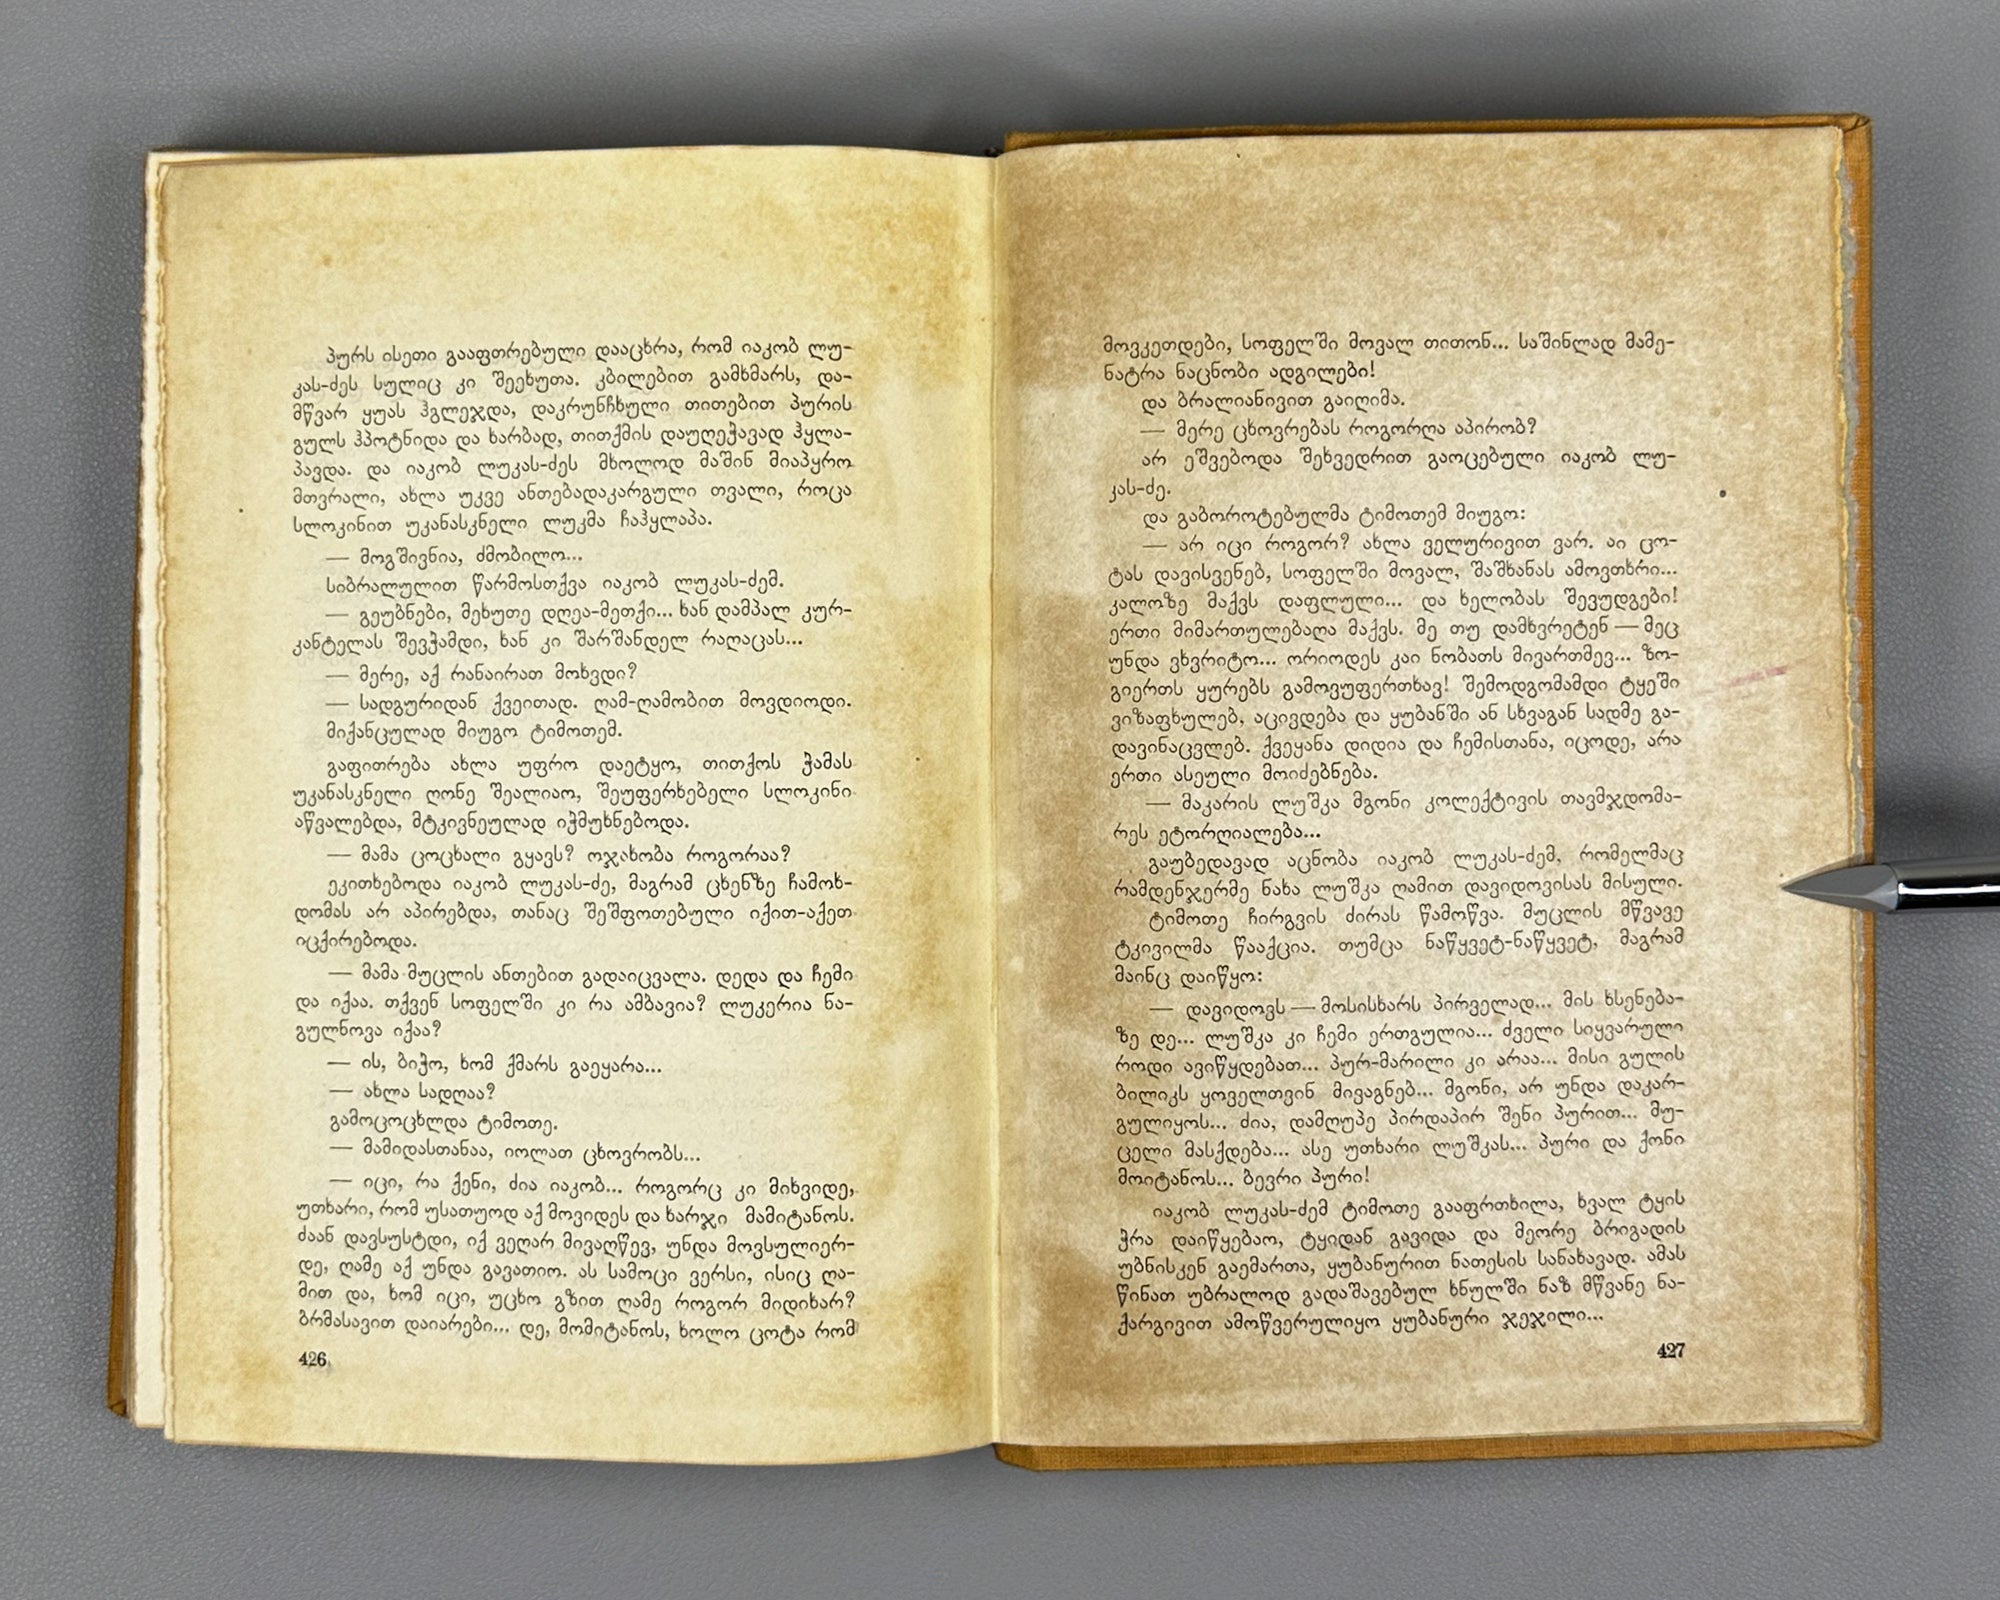 პურს ისეთი გააფთრებული დააცხრა, რომ იაკობ ლუ-
კას-ძეს სულიც კი შეეხუთა. კბილებით გამხმარს, და-
მწვარ ყუას ჰგლეჯდა, დაკრუნჩხული თითებით პურის
გულს ჰპოტნიდა და ხარბად, თითქმის დაუღეჭავად ჰყლა-
პავდა. და იაკობ ლუკას-ძეს მხოლოდ მაშინ მიაპყრო
მთვრალი, ახლა უკვე ანთებადაკარგული თვალი, როცა
სლოკინით უკანასკნელი ლუკმა ჩაჰყლაპა.
— მოგშივნია, ძმობილო...
სიბრალულით წარმოსთქვა იაკობ ლუკას-ძემ.
— გეუბნები, მეხუთე დღეა-მეთქი... ხან დამპალ კურ-
კანტელას შევჭამდი, ხან კი შარშანდელ რაღაცას...
— მერე, აქ რანაირათ მოხვდი?
— სადგურიდან ქვეითად. ღამ-ღამობით მოვდიოდი.
მიქანცულად მიუგო ტიმოთემ.
გაფითრება ახლა უფრო დაეტყო, თითქოს ჭამას
უკანასკნელი ღონე შეალიაო, შეუფერხებელი სლოკინი
აწვალებდა, მტკივნეულად იჭმუხნებოდა.
— მამა ცოცხალი გყავს? ოჯახობა როგორაა?
ეკითხებოდა იაკობ ლუკას-ძე, მაგრამ ცხენზე ჩამოხ-
დომას არ აპირებდა, თანაც შეშფოთებული იქით-აქეთ
იცქირებოდა.
— მამა მუცლის ანთებით გადაიცვალა. დედა და ჩემი
და იქაა. თქვენ სოფელში კი რა ამბავია? ლუკერია ნა-
გულნოვა იქაა?
— ის, ბიჭო, ხომ ქმარს გაეყარა...
— ახლა სადღაა?
გამოცოცხლდა ტიმოთე.
— მამიდასთანაა, იოლათ ცხოვრობს...
— იცი, რა ქენი, ძია იაკობ... როგორც კი მიხვიდე,
უთხარი, რომ უსათუოდ აქ მოვიდეს და ხარჯი მამიტანოს.
ძაან დავსუსტდი, იქ ვეღარ მივაღწევ, უნდა მოვსულიერ-
დე, ღამე აქ უნდა გავათიო. ას სამოცი ვერსი, ისიც ღა-
მით და, ხომ იცი, უცხო გზით ღამე როგორ მიდიხარ?
ბრმასავით დაიარები... დე, მომიტანოს, ხოლო ცოტა რომ
426
მოვკეთდები, სოფელში მოვალ თითონ... საშინლად მამე-
ნატრა ნაცნობი ადგილები!
და ბრალიანივით გაიღიმა.
— მერე ცხოვრებას როგორღა აპირობ?
არ ეშვებოდა შეხვედრით გაოცებული იაკობ ლუ-
კას-ძე.
და გაბოროტებულმა ტიმოთემ მიუგო:
— არ იცი როგორ? ახლა ველურივით ვარ. აი ცო-
ტას დავისვენებ, სოფელში მოვალ, შაშხანას ამოვთხრი...
კალოზე მაქვს დაფლული... და ხელობას შევუდგები!
ერთი მიმართულებაღა მაქვს. მე თუ დამხვრეტენ — მეც
უნდა ვხვრიტო... ორიოდეს კაი ნობათს მივართმევ... ზო-
გიერთს ყურებს გამოვუფერთხავ! შემოდგომამდი ტყეში
ვიზაფხულებ, აცივდება და ყუბანში ან სხვაგან სადმე გა-
დავინაცვლებ. ქვეყანა დიდია და ჩემისთანა, იცოდე, არა
ერთი ასეული მოიძებნება.
— მაკარის ლუშკა მგონი კოლექტივის თავმჯდომა-
რეს ეტორღიალება...
გაუბედავად აცნობა იაკობ ლუკას-ძემ, რომელმაც
რამდენჯერმე ნახა ლუშკა ღამით დავიდოვისას მისული.
ტიმოთე ჩირგვის ძირას წამოწვა. მუცლის მწვავე
ტკივილმა წააქცია. თუმცა ნაწყვეტ-ნაწყვეტ, მაგრამ
მაინც დაიწყო:
— დავიდოვს — მოსისხარს პირველად... მის ხსენება-
ზე დე... ლუშკა კი ჩემი ერთგულია... ძველი სიყვარული
როდი ავიწყდებათ... პურ-მარილი კი არაა... მისი გულის
ბილიკს ყოველთვინ მივაგნებ... მგონი, არ უნდა დაკარ-
გულიყოს... ძია, დამღუპე პირდაპირ შენი პურით... მუ-
ცელი მასქდება... ასე უთხარი ლუშკას... პური და ქონი
მოიტანოს... ბევრი პური!
იაკობ ლუკას-ძემ ტიმოთე გააფრთხილა, ხვალ ტყის
ჭრა დაიწყებაო, ტყიდან გავიდა და მეორე ბრიგადის
უბნისკენ გაემართა, ყუბანურით ნათესის სანახავად. ამას
წინათ უბრალოდ გადაშავებულ ხნულში ნაზ მწვანე ნა-
ქარგივით ამოწვერულიყო ყუბანური ჯეჯილი...
427